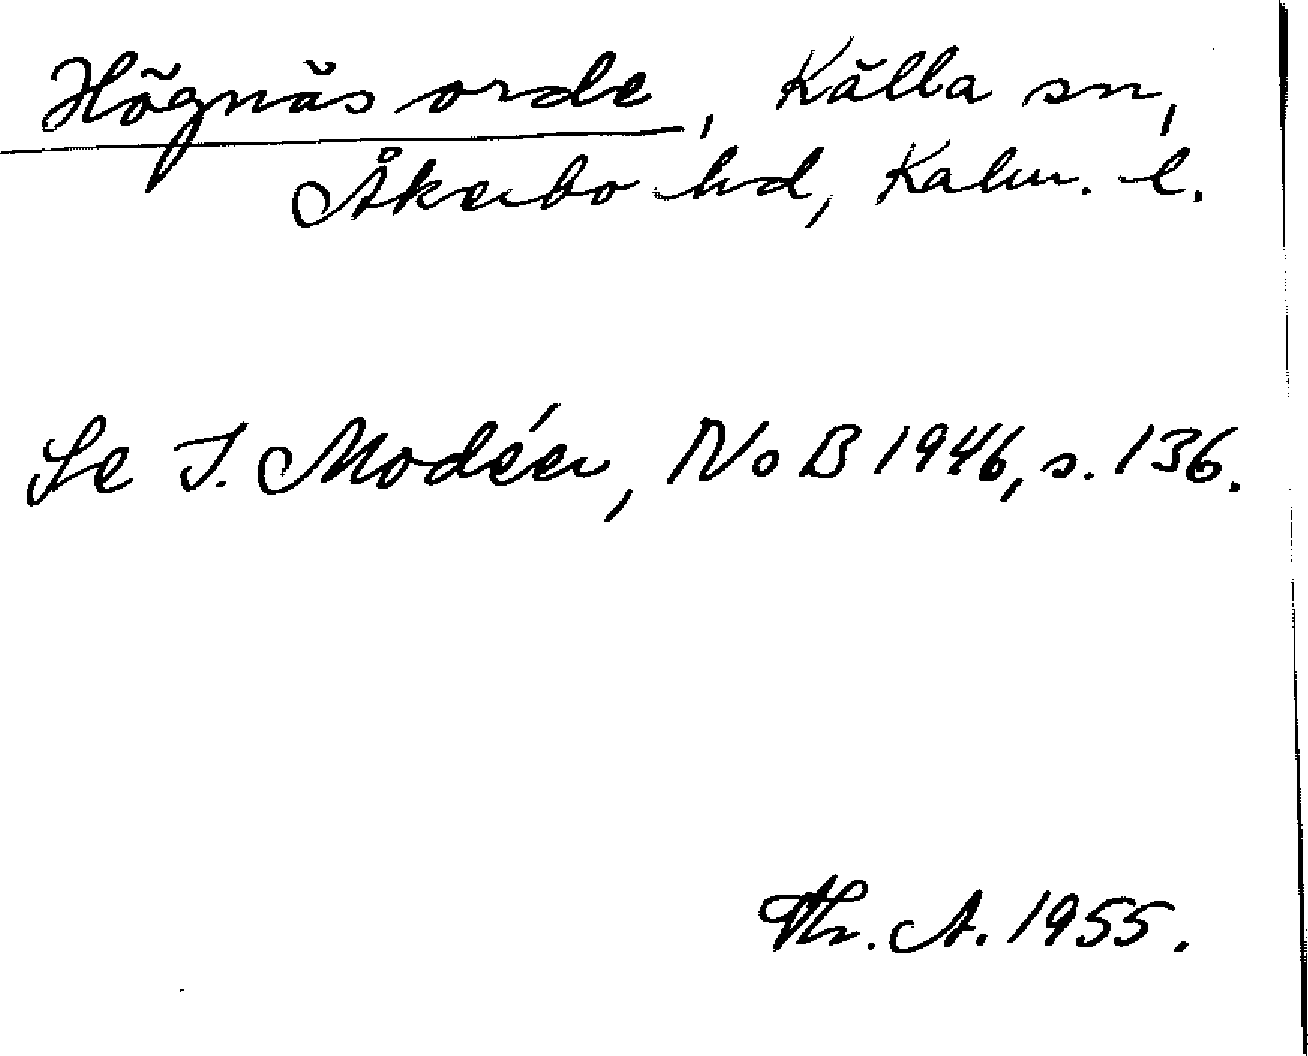 Högnäs orde, Källa sn,
Åkerbo hd, Kalm. l.
Se I. Modéer, NoB 1946, s. 136.
Th. A. 1955.